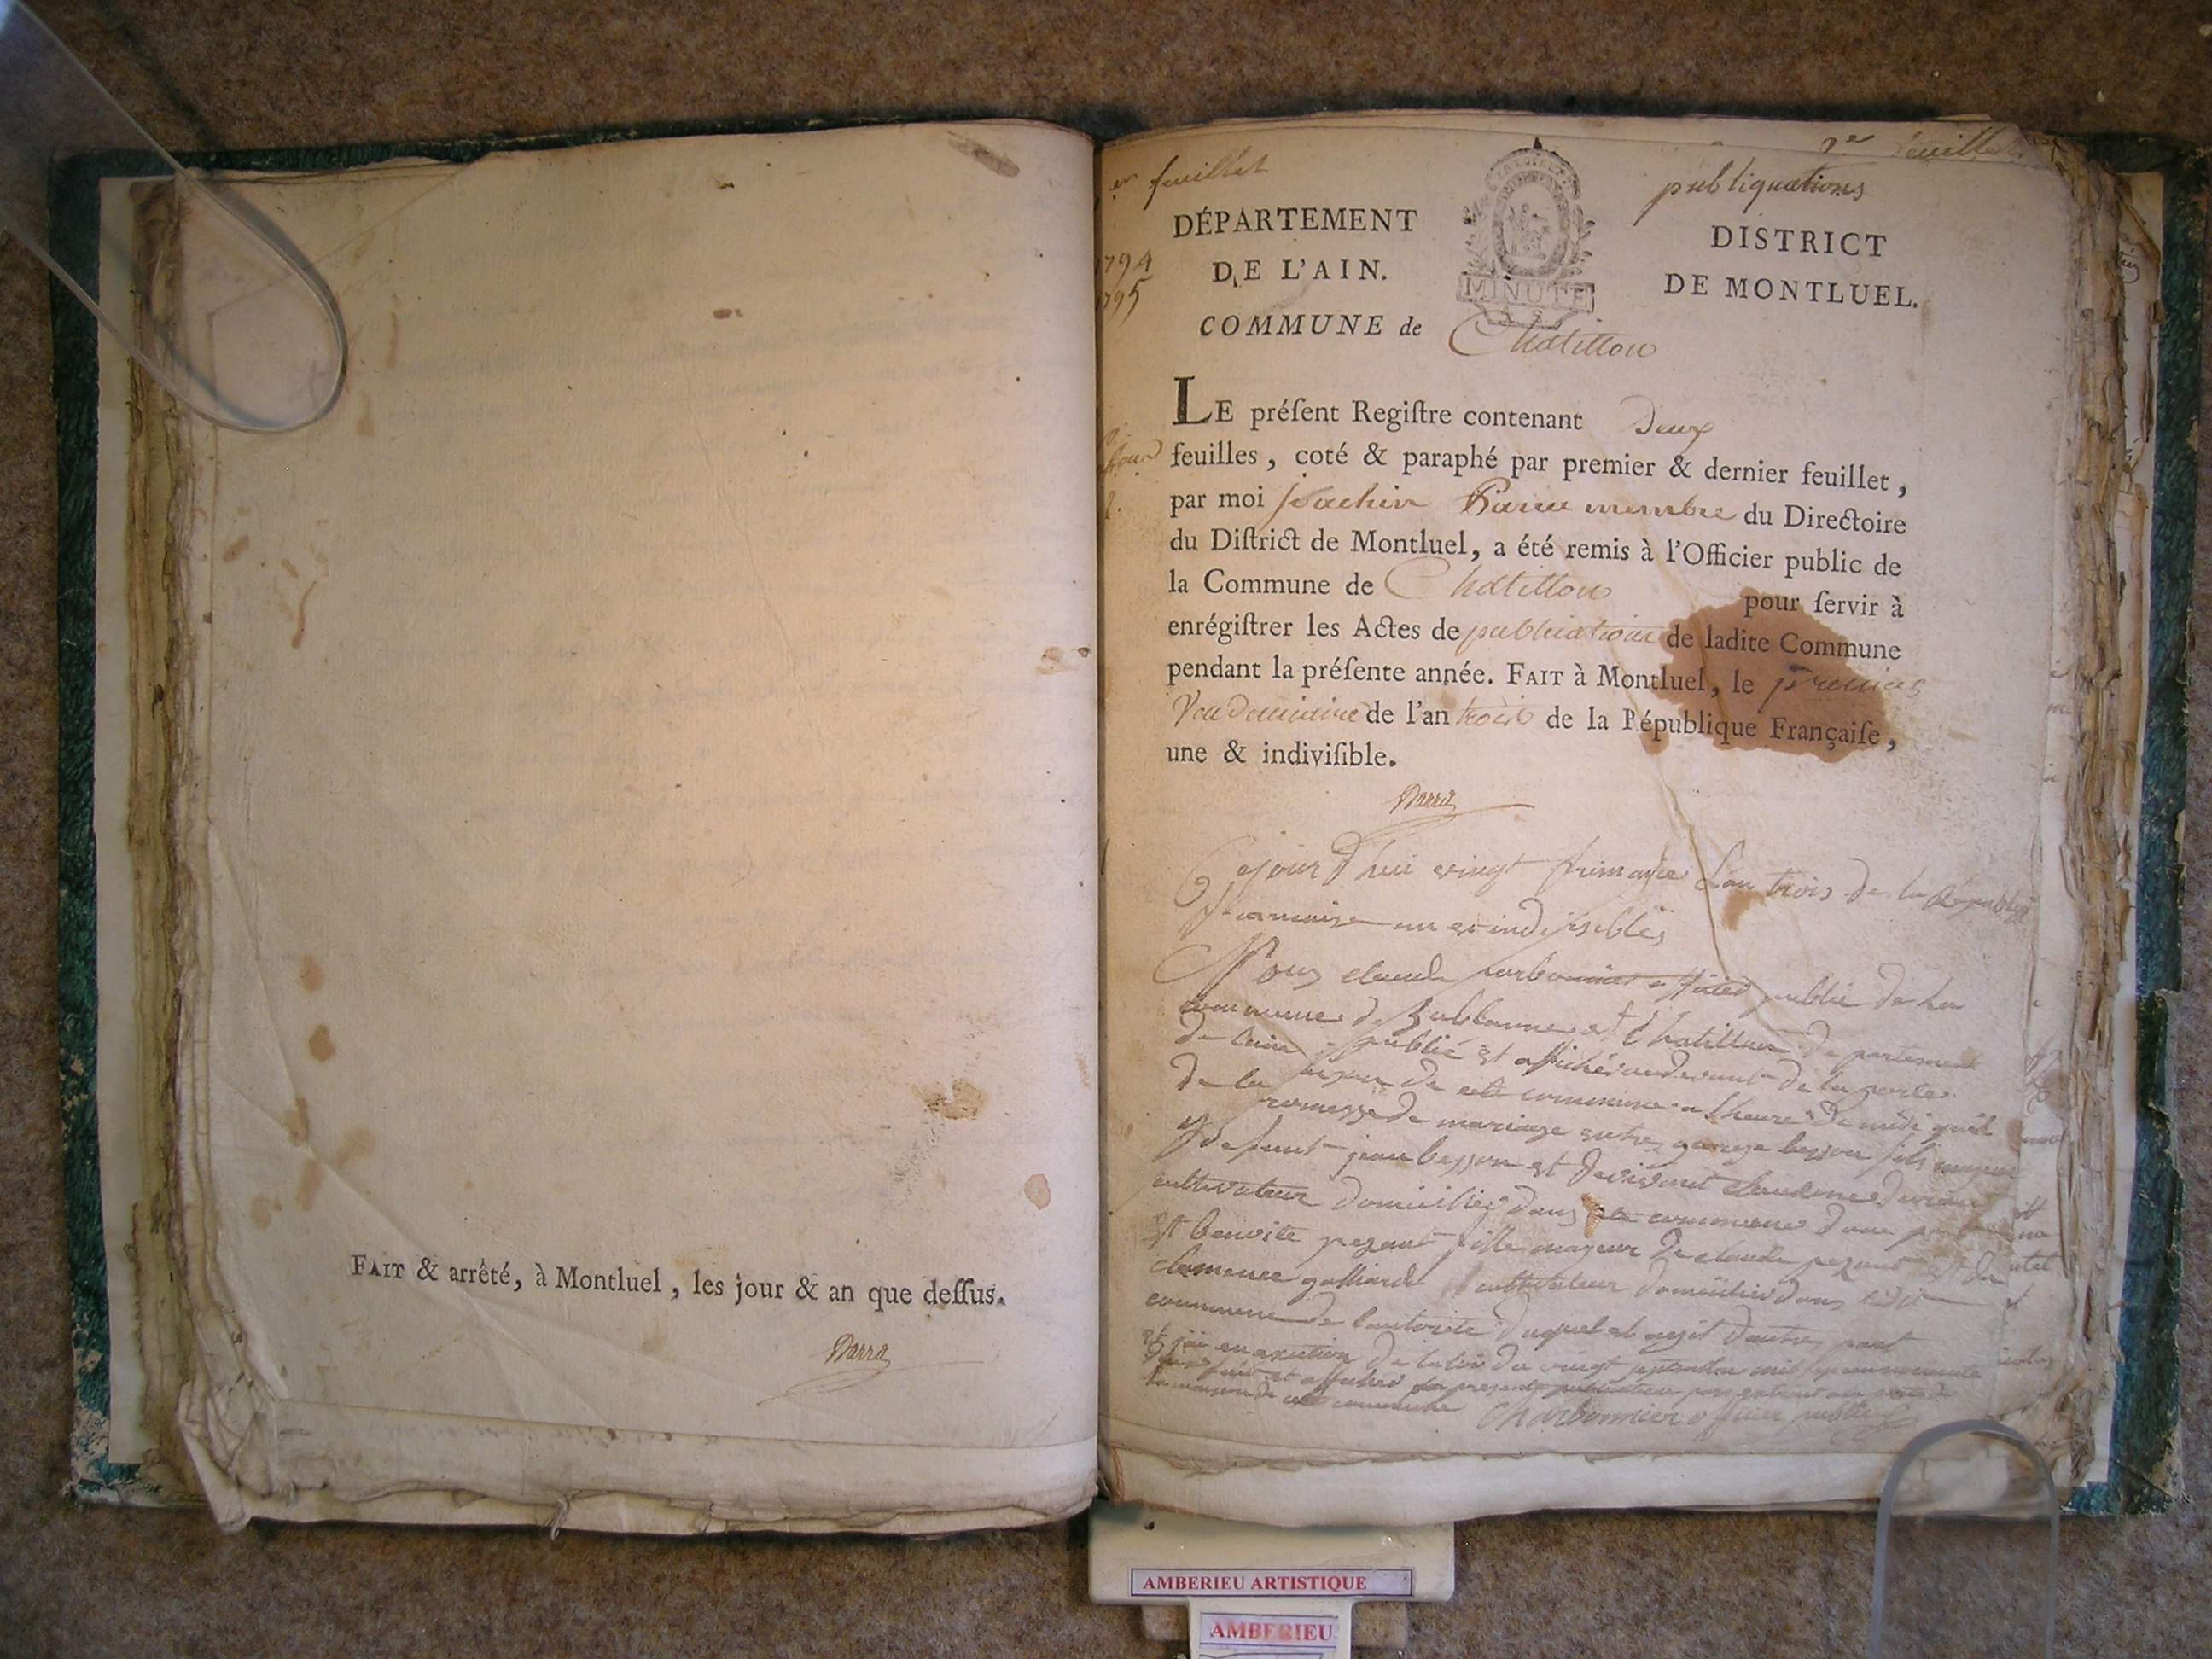 FAIT & arrêté, à Montluel, les jour & an que deſſus.
Barra
er feuillet
2er feuillet
publiquations
DÉPARTEMENT
DE L'AIN.
1794
1795
MINUTE
DISTRICT
DE MONTLUEL.
COMMUNE de Chatillon
LE préſent Regiſtre contenant Deux
feuilles, coté & paraphé par premier & dernier feuillet,
par moi Joachin Barra membre du Directoire
du Diſtrict de Montluel, a été remis à l'Officier public de
la Commune de Chatillon pour ſervir à
enrégiſtrer les Actes de publications de ladite Commune
pendant la préſente année. FAIT à Montluel, le premier
Vendemiaire de l'an trois de la République Françaiſe,
une & indiviſible.
Barra
Cejourd'hui vingt frimaire L'an trois de la Republi
francaise un et indisibles
Nous claude carbonnier officier public de La
commune de Bublanne et Chatillon departement
de lain publié et affiché audevant de la porte
de la maison de cete commune a lheure de midi quil
promesse de mariage entre george besson fils majeur
defunt jean besson et claudine
cultivateur domicilier dans cete commune d'une part
et benoite pezant fille majeur de claude pezant et de
clemence galliard cultivateur domicilier dans
commune de lautorite duquel el agit d'autre part
et jai en execution de la loi du vingt septembre mil
fait et afficher la presente publication porte de
la maison de cete commune Charbonnier officier public
AMBERIEU ARTISTIQUE
AMBERIEU